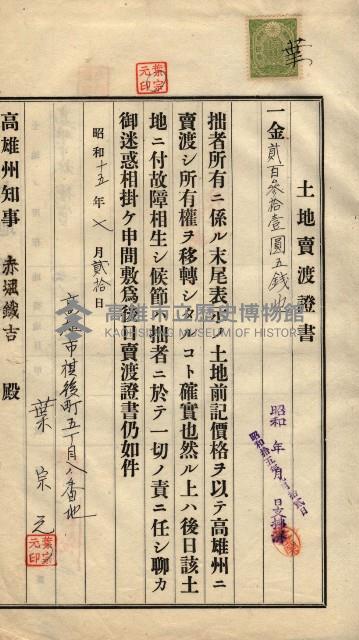 葉
葉宗元印
土地賣渡證書
一金貳百參拾壹圓五錢也
拙者所有ニ係ル末尾表示ノ土地前記價格ヲ以テ高雄州ニ
賣渡シ所有權ヲ移轉シタルコト確實也然ル上ハ後日該土
地ニ付故障相生シ候節ハ拙者ニ於テ一切ノ責ニ任シ聊カ
御迷惑相掛ケ申間敷為後日賣渡證書仍如件
昭和十五年七月貳拾日
高雄市旗後町五丁目八番地
葉宗元
葉宗元印
高雄州知事 赤堀鐵吉 殿
昭和 年 月 日
高雄市立歷史博物館
KAOHSIUNG MUSEUM OF HISTORY